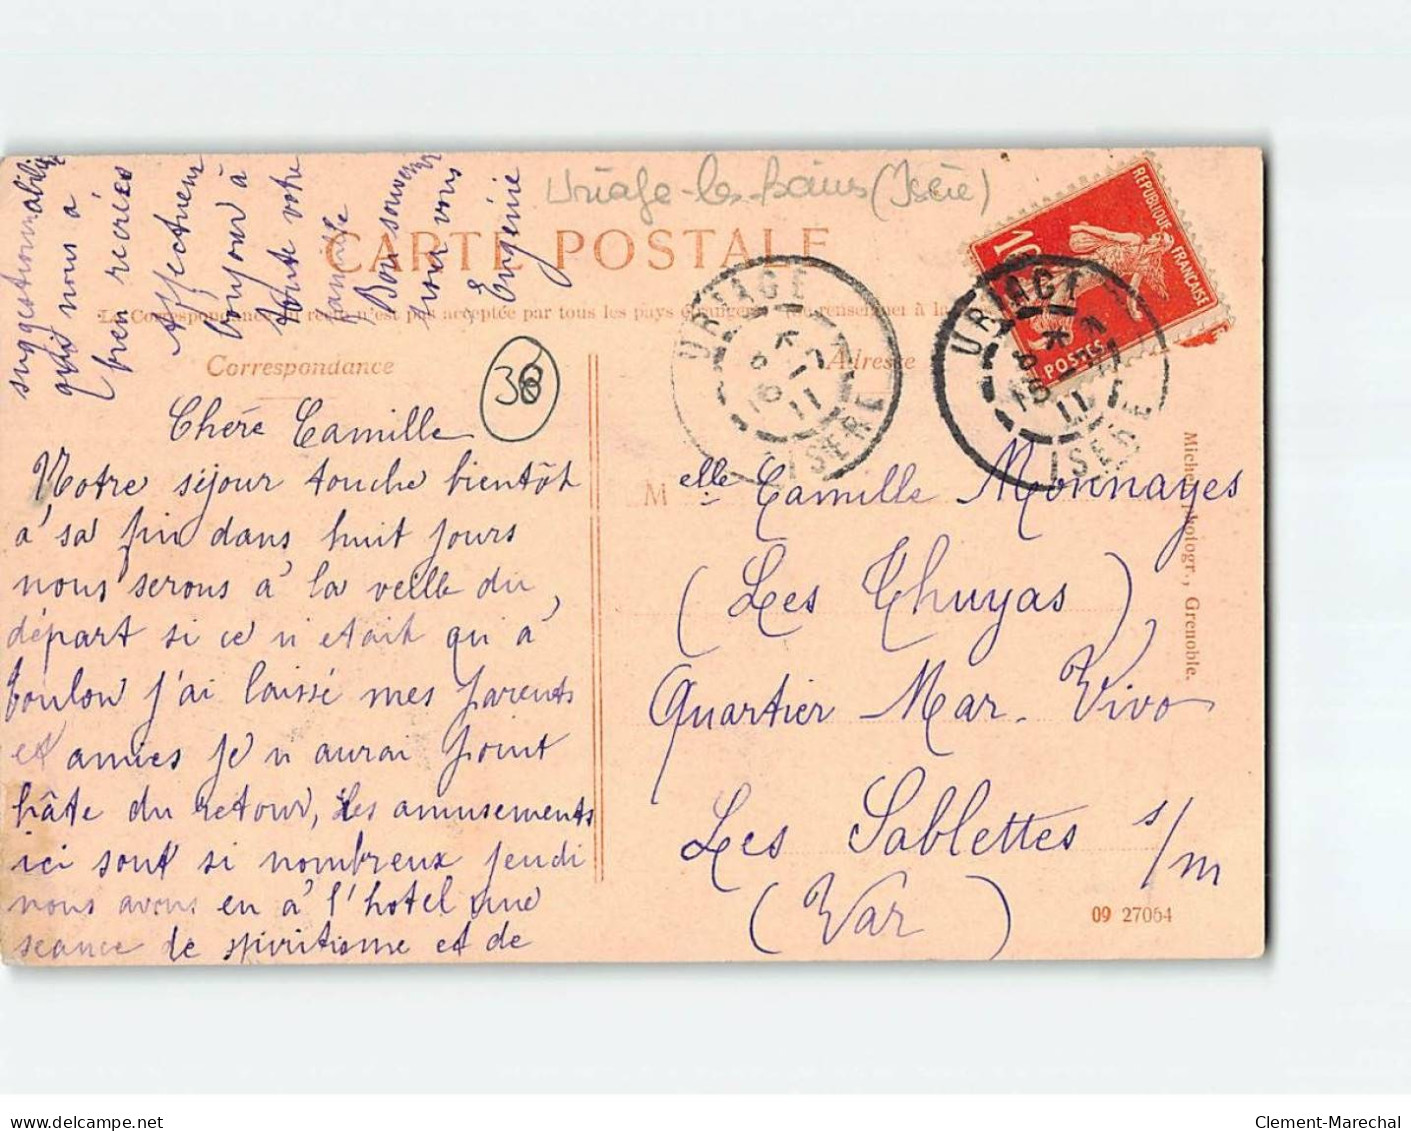 Uriage-les-bains (Isère)
CARTE POSTALE
La Correspondance au recto n'est pas acceptée par tous les pays étrangers. Se renseigner à la
Correspondance
Adresse
36
URIAGE
ISERE
URIAGE
ISERE
10
REPUBLIQUE FRANÇAISE
POSTES
Chére Camille
Notre séjour touche bientôt
à sa fin dans huit jours
nous serons à la veille du
départ si ce n'etait qu'à
Toulon j'ai laissé mes parents
et amies je n'aurai point
hâte du retour, les amusements
ici sont si nombreux jeudi
nous avons eu à l'hotel une
séance de spiritisme et de
suggestionnabilité
qui nous a
bien recriés
Affectueux
bonjour à
toute votre
famille
Bon souvenir
pour vous
Eugénie
Melle Camille Monnayes
(Les Thuyas)
Quartier Mar-Vivo
Les Sablettes s/m
(Var)
Michel, photogr., Grenoble.
09 27064
Clement-Marechal